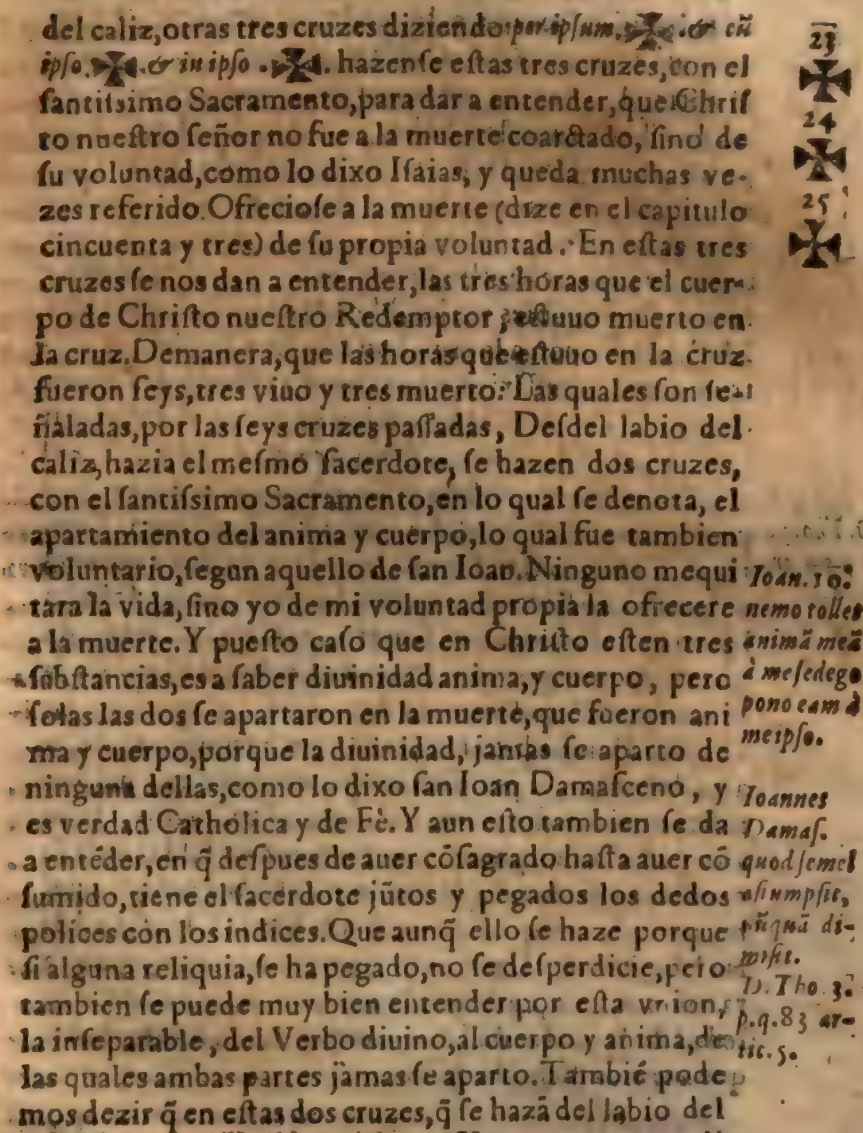 del caliz,otras tres cruzes diziendo per ipſum.✠.& cū
ipſo.✠.& in ipſo .✠. hazenſe eſtas tres cruzes,con el
ſantiſsimo Sacramento,para dar a entender,que Chriſ
to nueſtro ſeñor no fue a la muerte coarctado, ſino de
ſu voluntad,como lo dixo Iſaias, y queda muchas ve-
zes referido.Ofrecioſe a la muerte (dize en el capitulo
cincuenta y tres) de ſu propia voluntad. En eſtas tres
cruzes ſe nos dan a entender,las tres horas que el cuer-
po de Chriſto nueſtro Redemptor eſtuuo muerto en
la cruz.Demanera,que las horas que eſtuuo en la cruz
fueron ſeys,tres viuo y tres muerto. Las quales ſon ſe-
ñaladas,por las ſeys cruzes paſſadas, Deſdel labio del
caliz,hazia el meſmo ſacerdote, ſe hazen dos cruzes,
con el ſantiſsimo Sacramento,en lo qual ſe denota, el
apartamiento del anima y cuerpo,lo qual fue tambien
voluntario,ſegun aquello de ſan Ioan.Ninguno me qui
tara la vida,ſino yo de mi voluntad propia la ofrecere
a la muerte.Y pueſto caſo que en Chriſto eſten tres
ſubſtancias,es a ſaber diuinidad anima,y cuerpo, pero
ſolas las dos ſe apartaron en la muerte,que fueron ani
ma y cuerpo,porque la diuinidad, jamas ſe aparto de
ninguna dellas,como lo dixo ſan Ioan Damaſceno, y
es verdad Catholica y de Fè.Y aun eſto tambien ſe da
a entēder,en q̃ deſpues de auer cōſagrado haſta auer cō
ſumido,tiene el ſacerdote jūtos y pegados los dedos
polices con los indices.Que aunq̃ ello ſe haze porque
ſi alguna reliquia,ſe ha pegado,no ſe deſperdicie,pero
tambien ſe puede muy bien entender por eſta vnion,
la inſeparable, del Verbo diuino,al cuerpo y anima,de
las quales ambas partes jamas ſe aparto.Tambiē pode
mos dezir q̃ en eſtas dos cruzes,q̃ ſe hazā del labio del
23
✠
24
✠
25
✠
Ioan.10.
nemo tollet
animā meā
à me ſed ego
pono eam à
meipſo.
Ioannes
Damaſ.
quod ſemel
aſſumpſit,
nūquā di-
miſit.
D.Tho.3.
p.q.83 ar-
tic.5.